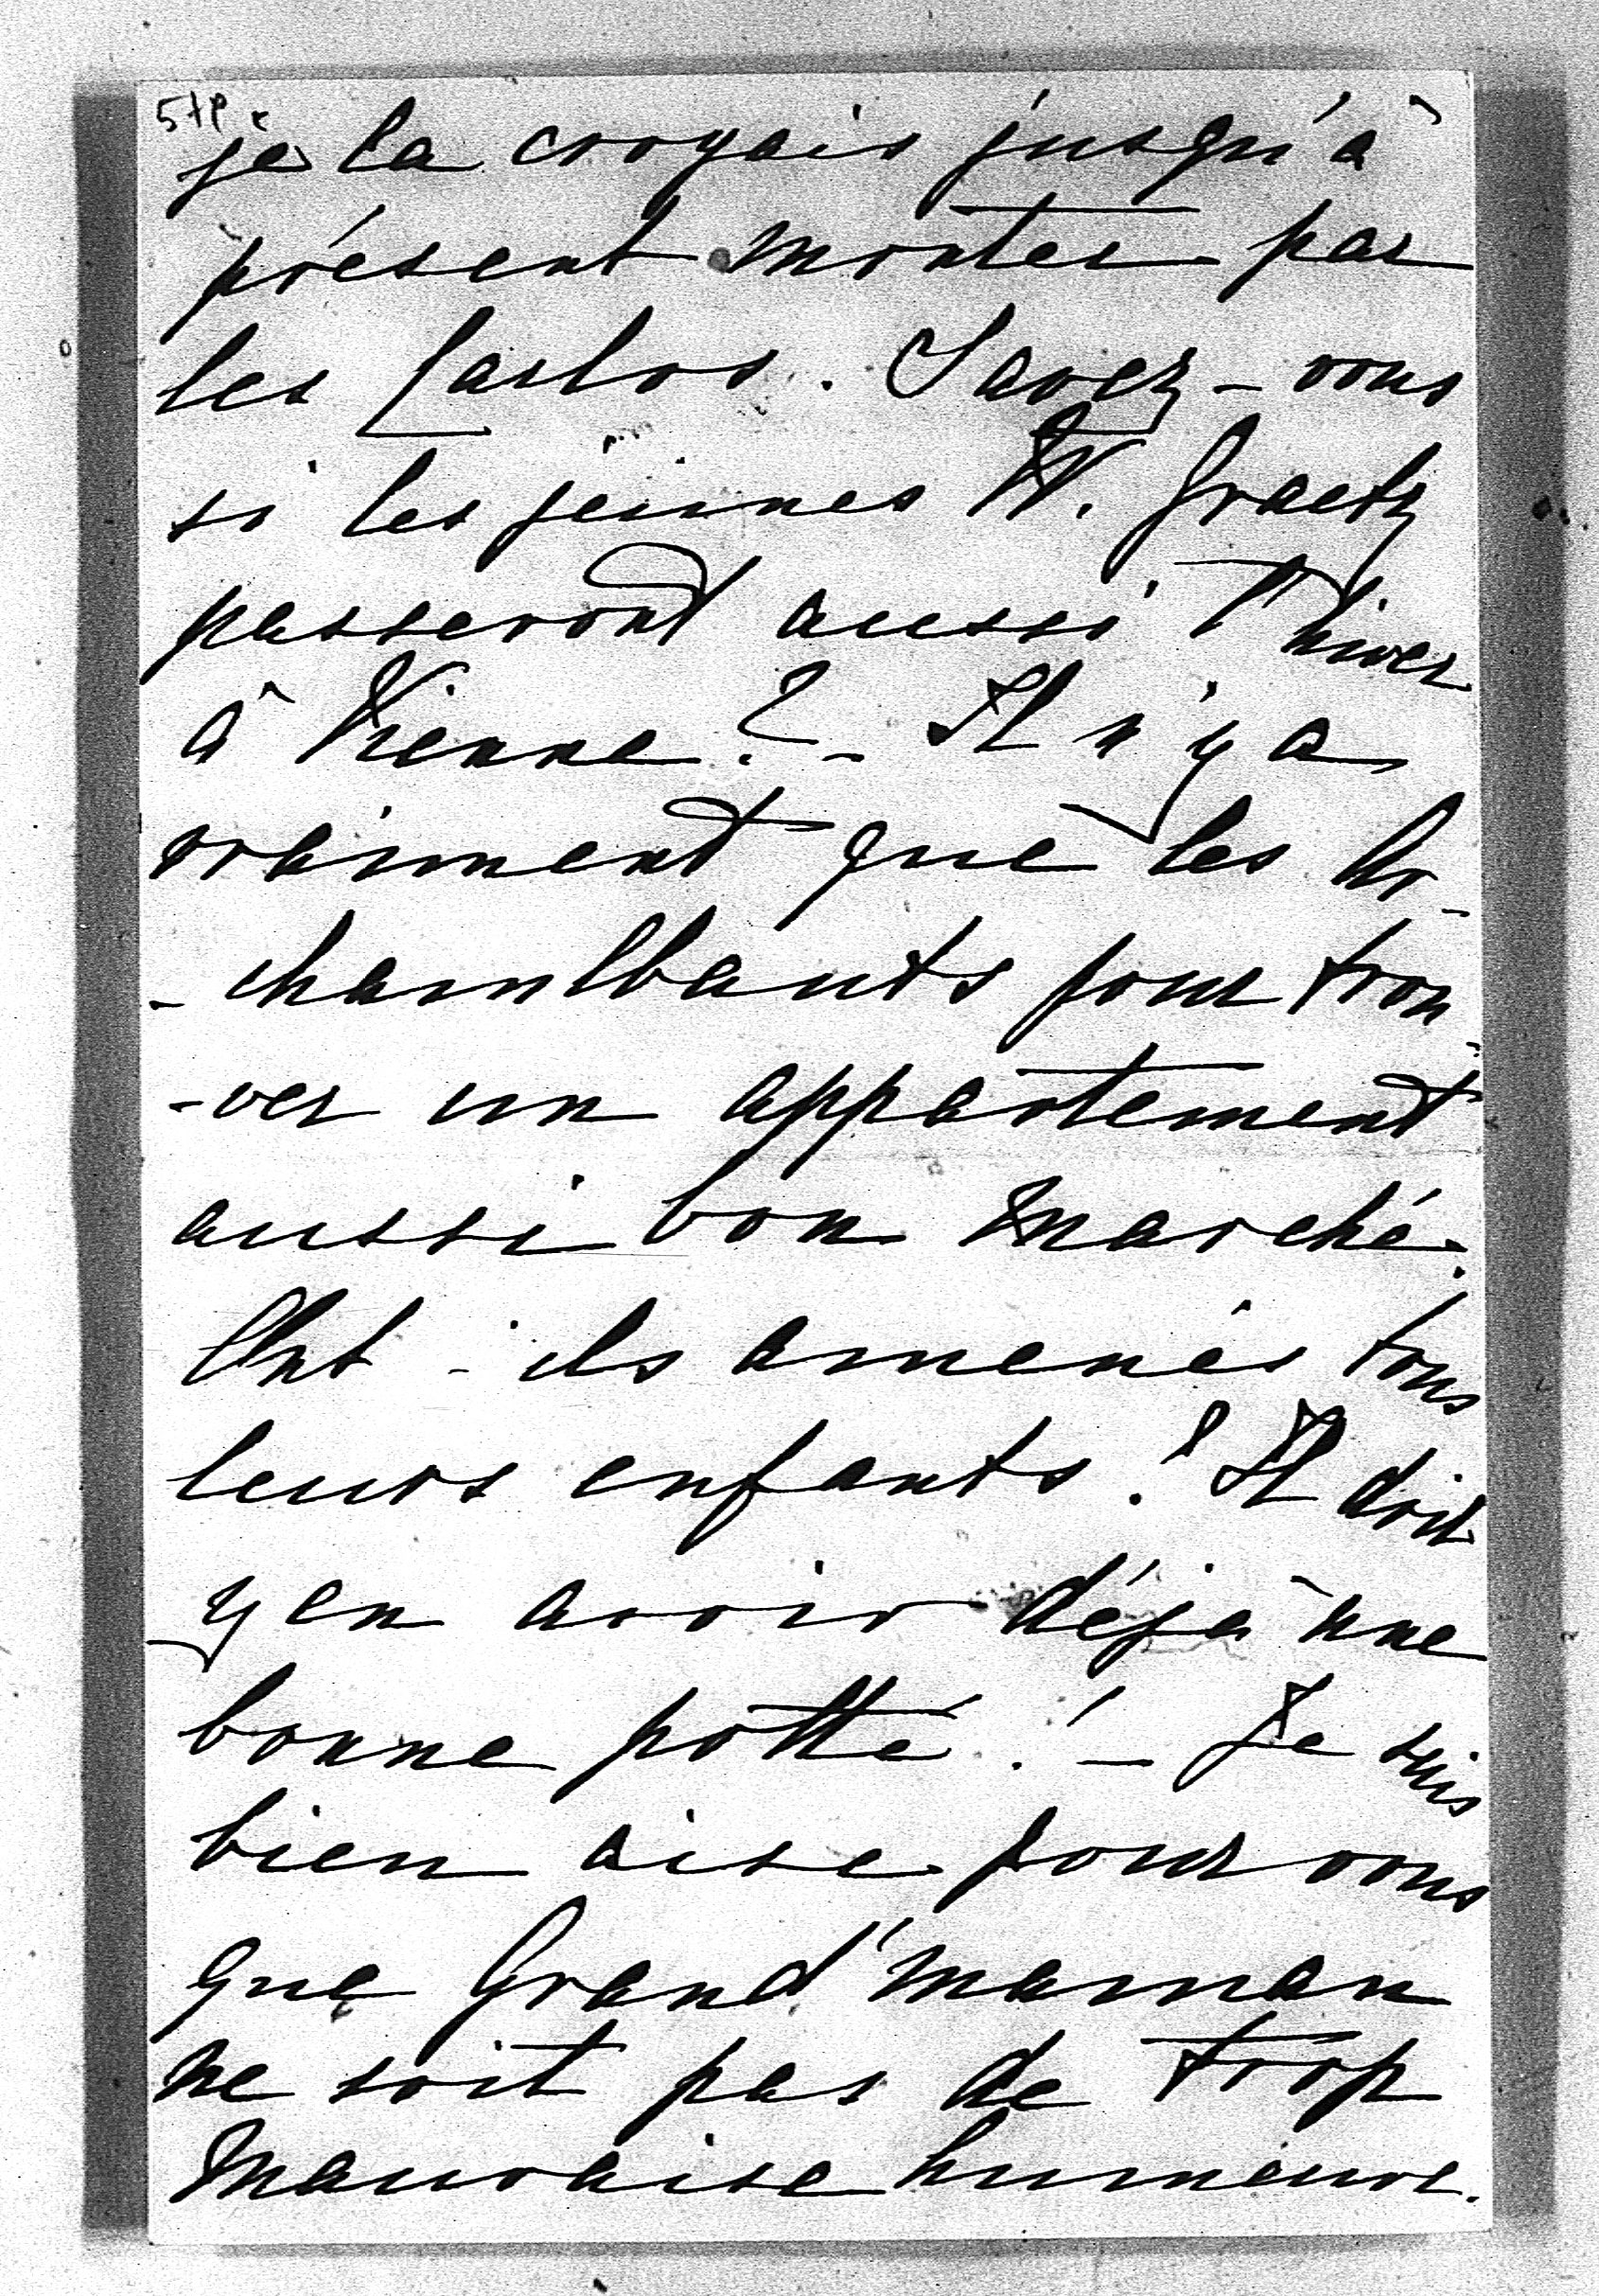 je la croyais jusqu'à
présent montée par
les Carlos. Savez-vous
si les jeunes W. Graetz
passeront aussi l'hiver
à Vienne? - Il n'y a
vraiment que les Ar-
-chambauts pour trou-
-ver un appartement
aussi bon marché.
Ont-ils amenés tous
leurs enfants? Il doit
y en avoir déjà une
bonne potté! - Je suis
bien aise pour vous
que Grand'maman
ne soit pas de trop
mauvaise humeure.